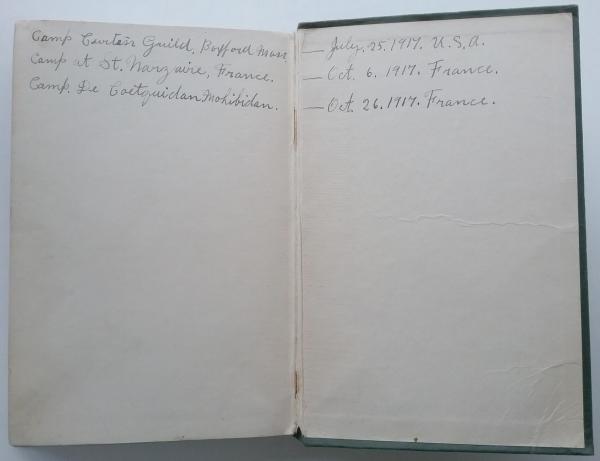 Camp Curtain Guild, Boxford Mass — July. 25. 1917. U.S.A.
Camp at St. Narzaire, France. — Oct. 6. 1917. France.
Camp. De Coetquidan Mohibidan. — Oct. 26. 1917. France.